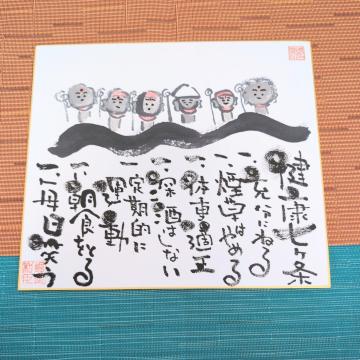 健康七ケ条
一、充分ねる
一、煙草はやめる
一、体重適正
一、深酒はしない
定期的に
運動
一、朝食をとる
一、毎日笑う